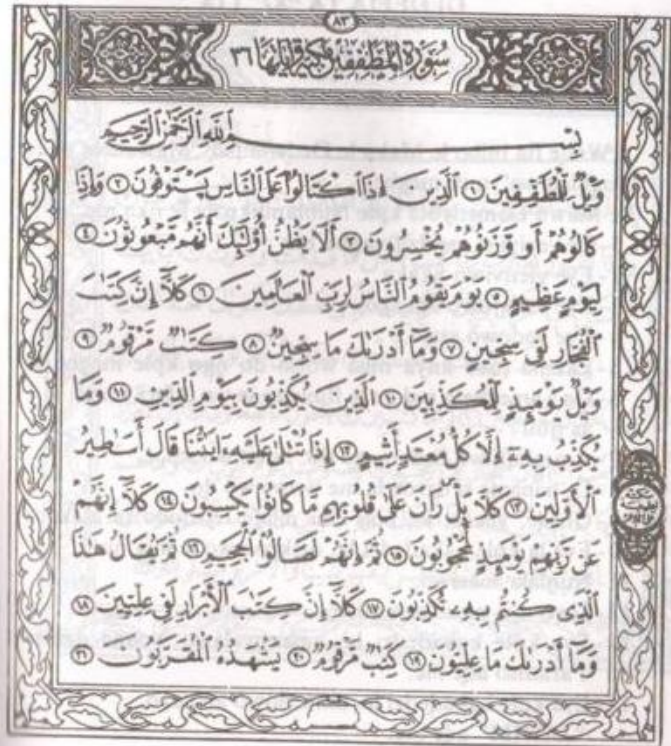 ٨٣
سُورَةُ الْمُطَفِّفِينَ مَكِّيَّة وَآيَاتُهَا ٣٦
بِسْمِ اللَّهِ الرَّحْمَٰنِ الرَّحِيمِ
وَيْلٌ لِّلْمُطَفِّفِينَ ١ الَّذِينَ إِذَا اكْتَالُوا عَلَى النَّاسِ يَسْتَوْفُونَ ٢ وَإِذَا
كَالُوهُمْ أَو وَّزَنُوهُمْ يُخْسِرُونَ ٣ أَلَا يَظُنُّ أُولَٰئِكَ أَنَّهُم مَّبْعُوثُونَ ٤
لِيَوْمٍ عَظِيمٍ ٥ يَوْمَ يَقُومُ النَّاسُ لِرَبِّ الْعَالَمِينَ ٦ كَلَّا إِنَّ كِتَٰبَ
الْفُجَّارِ لَفِي سِجِّينٍ ٧ وَمَا أَدْرَىٰكَ مَا سِجِّينٌ ٨ كِتَٰبٌ مَّرْقُومٌ ٩
وَيْلٌ يَوْمَئِذٍ لِّلْمُكَذِّبِينَ ١٠ الَّذِينَ يُكَذِّبُونَ بِيَوْمِ الدِّينِ ١١ وَمَا
يُكَذِّبُ بِهِ إِلَّا كُلُّ مُعْتَدٍ أَثِيمٍ ١٢ إِذَا تُتْلَىٰ عَلَيْهِ ءَايَٰتُنَا قَالَ أَسَٰطِيرُ
الْأَوَّلِينَ ١٣ كَلَّا بَلْ رَانَ عَلَىٰ قُلُوبِهِم مَّا كَانُوا يَكْسِبُونَ ١٤ كَلَّا إِنَّهُمْ
عَن رَّبِّهِمْ يَوْمَئِذٍ لَّمَحْجُوبُونَ ١٥ ثُمَّ إِنَّهُمْ لَصَالُوا الْجَحِيمِ ١٦ ثُمَّ يُقَالُ هَٰذَا
الَّذِي كُنتُم بِهِ تُكَذِّبُونَ ١٧ كَلَّا إِنَّ كِتَٰبَ الْأَبْرَارِ لَفِي عِلِّيِّينَ ١٨
وَمَا أَدْرَىٰكَ مَا عِلِّيُّونَ ١٩ كِتَٰبٌ مَّرْقُومٌ ٢٠ يَشْهَدُهُ الْمُقَرَّبُونَ ٢١